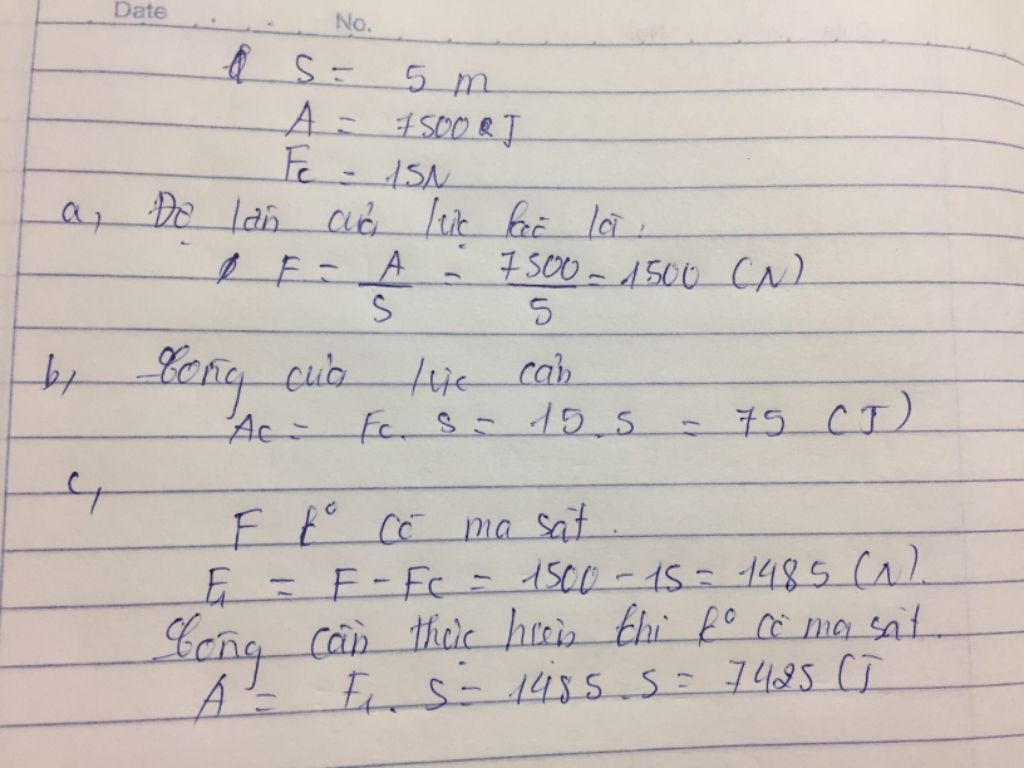 Date No.
S = 5 m
A = 7500 J
Fc = 15N
a, Độ lớn của lực kéo là:
F = A/S = 7500/5 = 1500 (N)
b, Công của lực cản
Ac = Fc. S = 15.5 = 75 (J)
c,
F k° có ma sát.
F1 = F - Fc = 1500 - 15 = 1485 (N).
Công cần thực hiện khi k° có ma sát.
A = F1. S = 1485.5 = 7425 (J